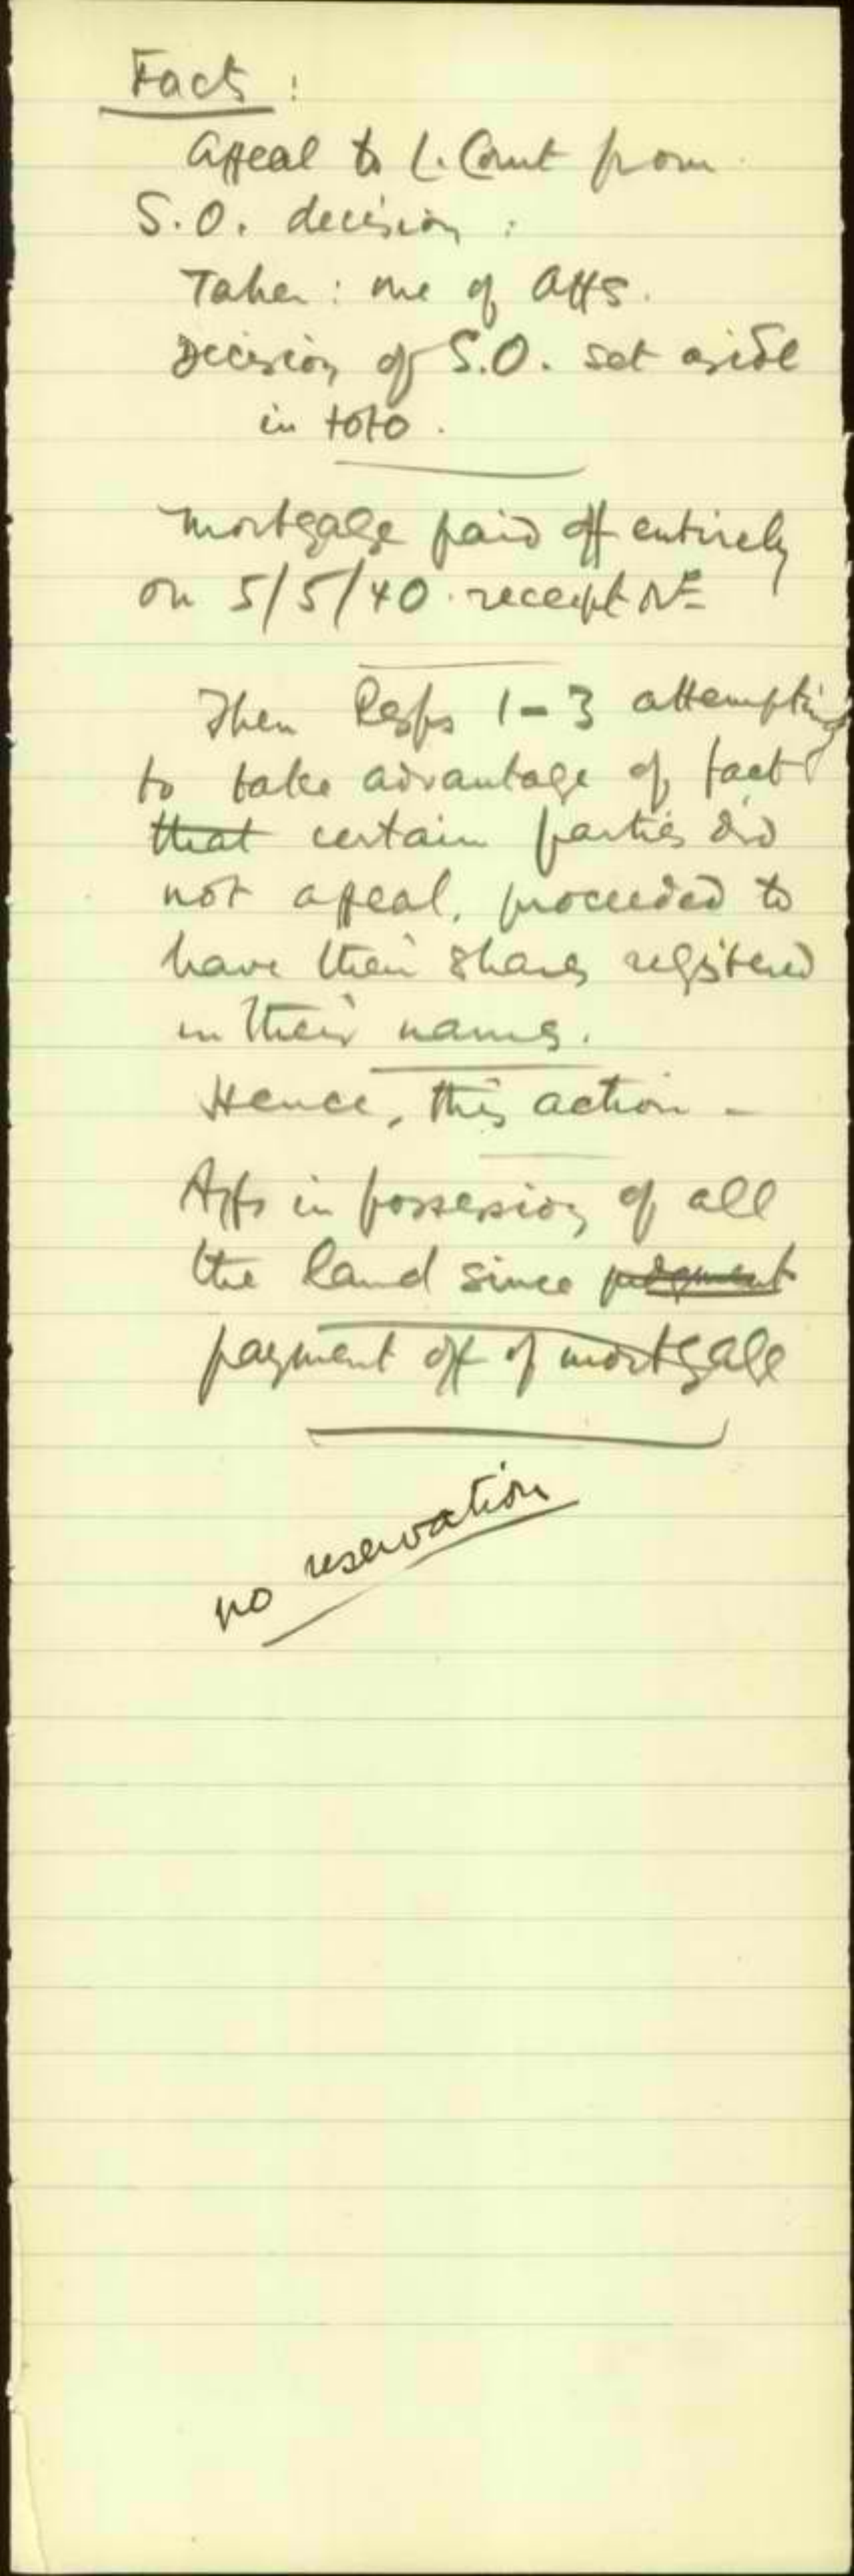 Facts :
Appeal to L. Court from
S.O. decision :
Taher : one of Apps.
Decision of S.O. set aside
in toto .
mortgage paid off entirely
on 5/5/40 . receipt No
Then Resps 1-3 attempting
to take advantage of fact
that certain parties did
not appeal, proceeded to
have their shares registered
in their names.
Hence, this action -
Apps in possession of all
the land since judgment
payment off of mortgage
no reservation